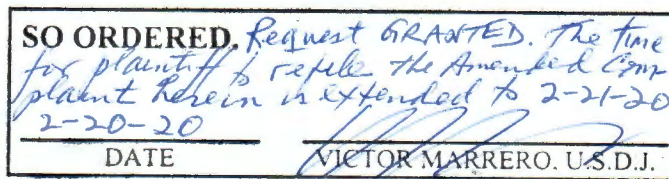 SO ORDERED. Request GRANTED. The time
for plaintiff to refile the Amended Com-
plaint herein is extended to 2-21-20
2-20-20
DATE VICTOR MARRERO. U.S.D.J.